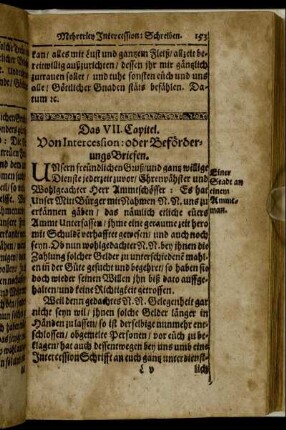 Mehrerley Intercession: Schreiben. 153
kan/ alles mit Lust und gantzem Fleiß/ allzeit be-
reitwillig außzurichten/ dessen ihr mir gäntzlich
zutrauen sollet/ und thue sonsten euch und uns
alle/ Göttlicher Gnaden stäts befählen. Da-
tum ꝛc.
Das VII. Capitel.
Von Intercession: oder Beförder-
ungs Briefen.
UNsern freundlichen Gruß/ und gantz willige
Dienste jederzeit zuvor/ Ehrenvöhster und
Wohlgeachter Herr Ammtschösser: Es hat
Unser MitBürger mit Nahmen N. N. uns zu
erkännen gäben/ das nämlich etliche eüers
Ammt Untersassen/ ihme eine geraume zeit hero
mit Schuldē verhafftet gewesen/ und auch noch
seyn. Ob nun wohlgedachter N. N. bey ihnen die
Zahlung solcher Gelder zu unterschiedenē mahl-
en in der Güte gesucht und begehret/ so haben sie
doch wieder seinen Willen ihn biß dato auffge-
halten/ und keine Richtigkeit getroffen.
Weil denn gedachtes N. N. Gelegenheit gar
nicht seyn wil/ ihnen solche Gelder länger in
Händen zu lassen/ so ist derselbige nunmehr ent-
schlossen/ obgemelte Personen/ vor euch zu be-
klagen/ hat auch dessentwegen bey uns umb eine
Intercession Schrifft an euch gantz unterdienst-
lich
Einer
Stadt an
einem
Ammt-
man.